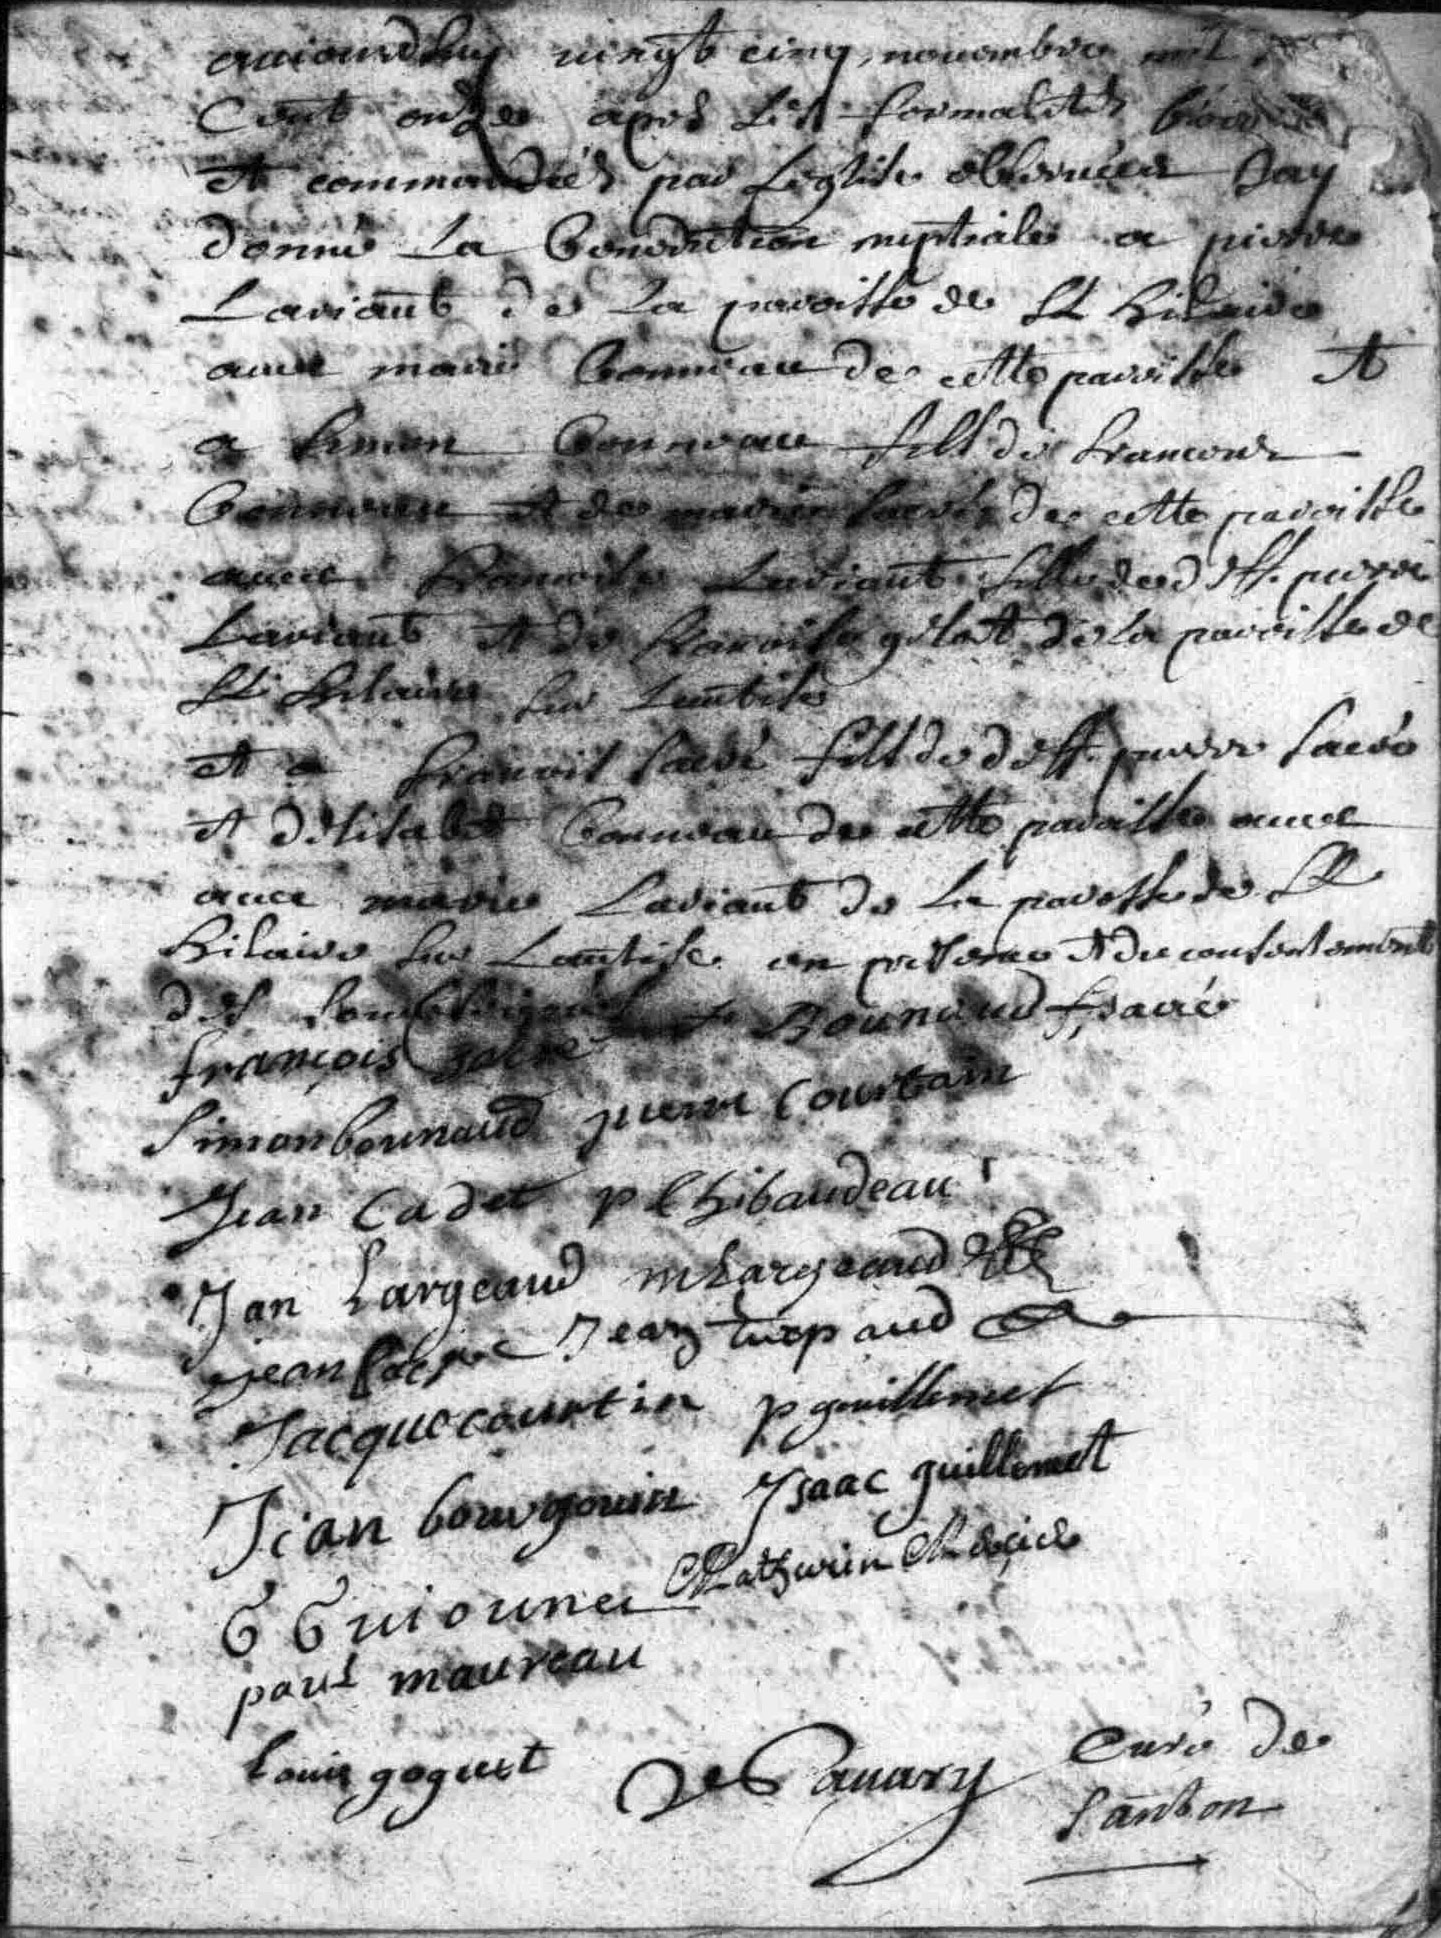 auiourdhuy vingt cinq nouembre mil
Cent onze apres les formalités
et commandées par Leglise obseruées Jay
donné La Benediction nuptiale a pierre
Lauiault de La paroisse de St hilaire
auec marie Bonneau de cette paroisse et
a Simon Bonneau fils de francois
Bonneau et de marie Sacré de cette paroisse
auec francoise Lauiault fille de deff. pierre
Lauiault et de francoise de la paroisse de
St hilaire sur Lautise
et a francois Sacré fils de deff. pierre Sacré
et delisabet Bonneau de cette paroisse auec
auec marie Lauiault de La paroisse de St
hilaire sur Lautise en presence et du consentement
des soubssignés Bounaud f sacré
françois sacre
Simon bounaud pierre Courtain
Jean Cadet p thibaudeau
Jan Largeaud m Largeaud
jean Jean turpaud
Jacque courtin p guillemet
Jean bourgouin Ysaac guillemet
G Guiounet Mathurin
paul maureau
Louis goguet De Sauary Curé de
Sanxon